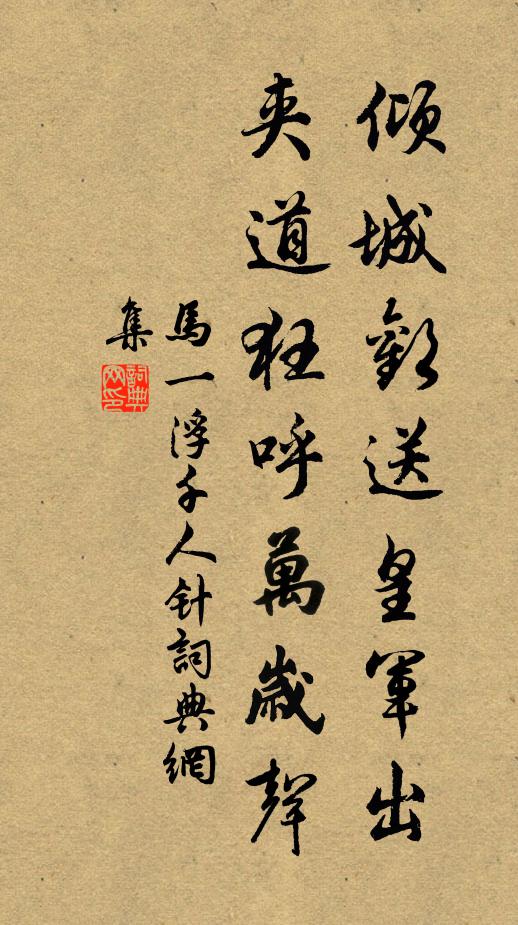 傾城歡送皇軍出
夾道狂呼萬歲聲
馬一浮千人针詞典網
集
詞典網印